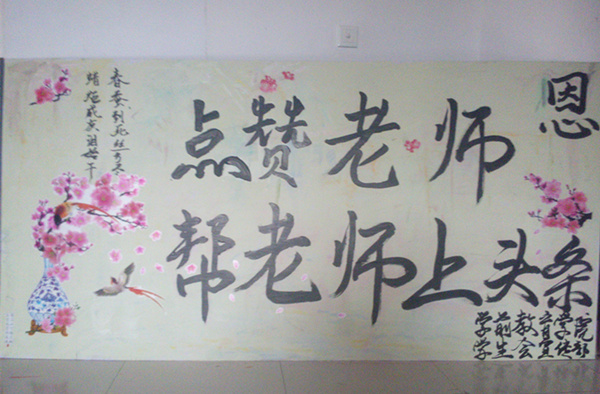 春蚕到死丝方尽
蜡炬成灰泪始干
恩
点赞老师
帮老师上头条
学前教育学院
学生会宣传部